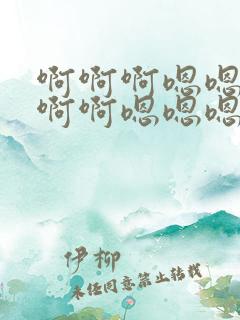 啊啊啊嗯嗯
啊啊嗯嗯嗯
伊柳
未经同意禁止转载